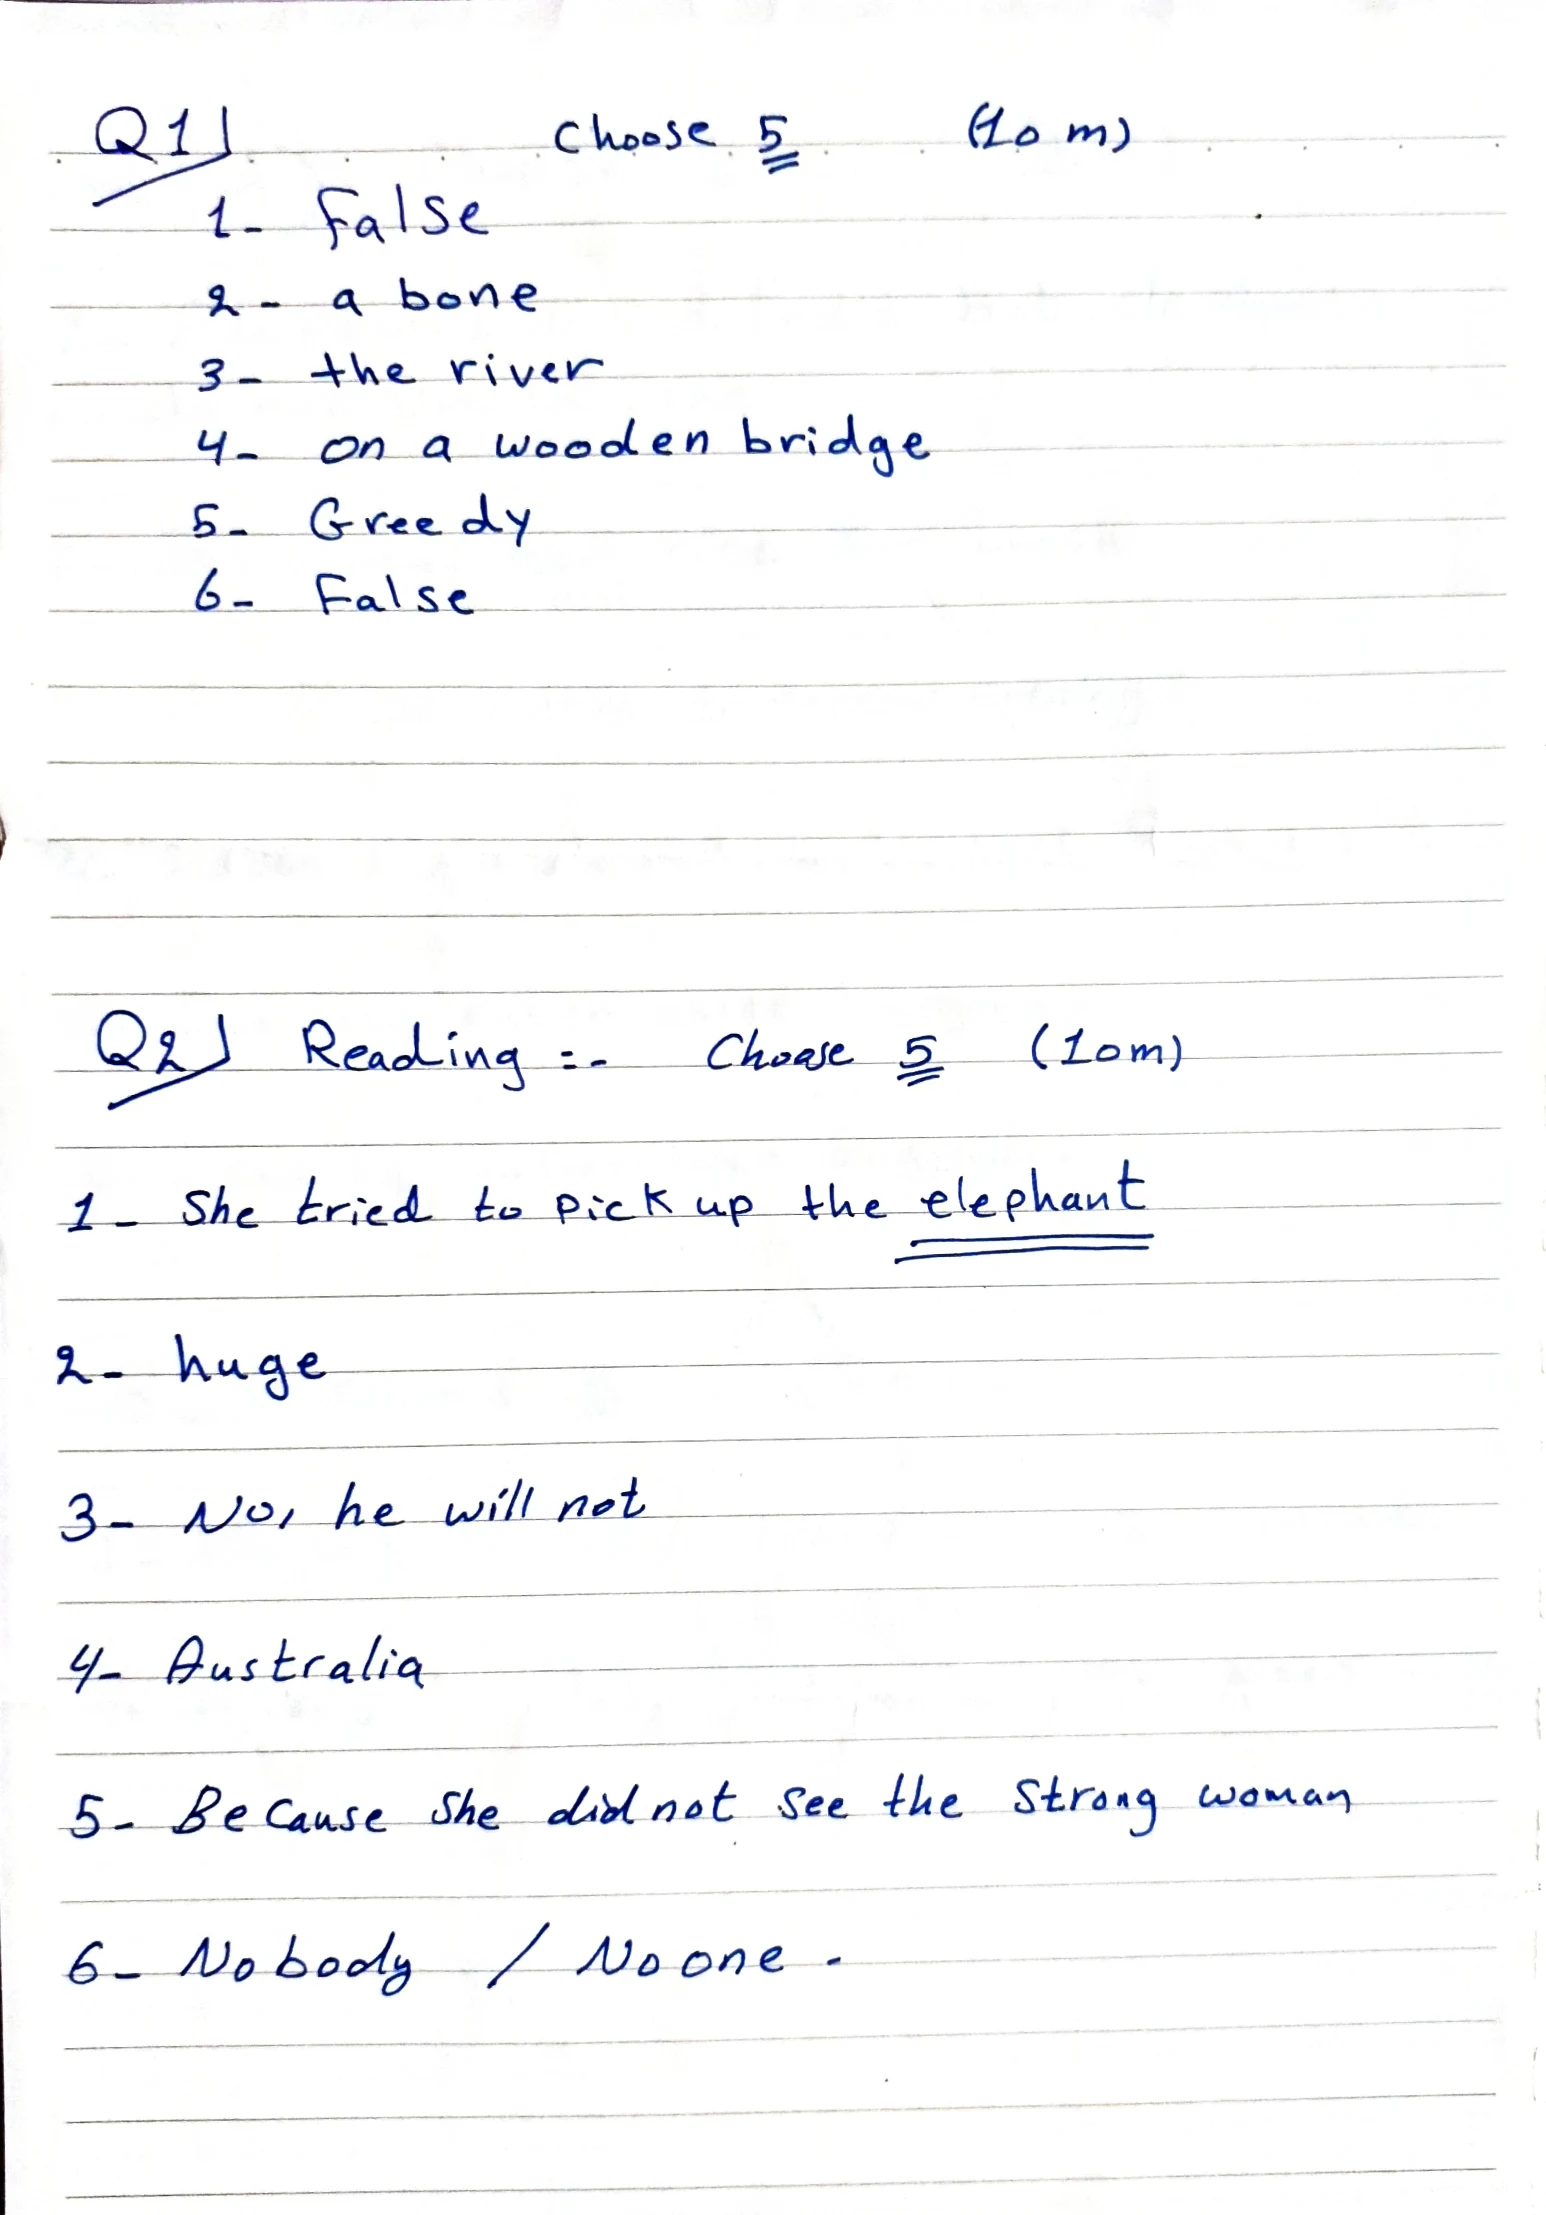 Q1) Choose 5 (10 m)
1- False
2- a bone
3- the river
4- on a wooden bridge
5- Greedy
6- False
Q2) Reading :- Choose 5 (10m)
1- She tried to pick up the elephant
2- huge
3- No, he will not
4- Australia
5- Because She did not see the strong woman
6- No body / No one .